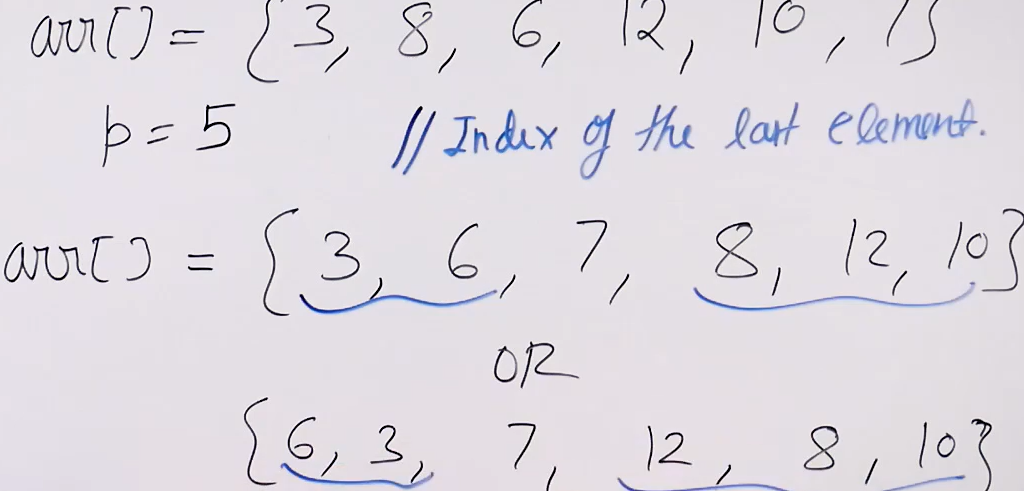 arr[] = {3, 8, 6, 12, 10, 7}
p = 5 // Index of the last element.
arr[] = {3, 6, 7, 8, 12, 10}
OR
{6, 3, 7, 12, 8, 10}